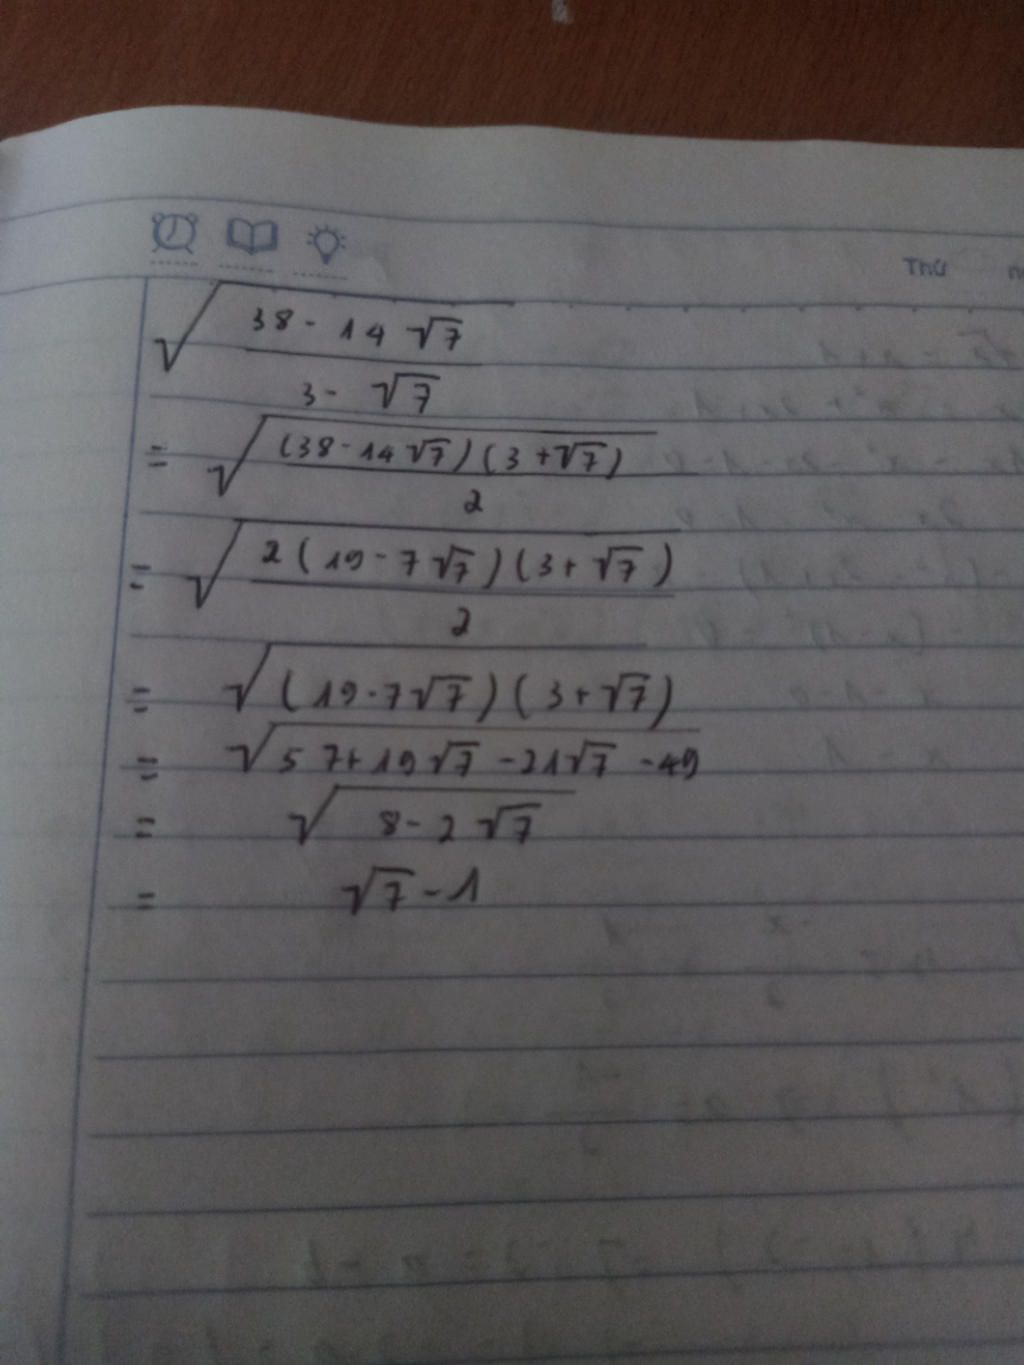 Thứ
√(38 - 14√7)
3 - √7
= √((38 - 14√7)(3 + √7))
2
= √(2(19 - 7√7)(3 + √7))
2
= √((19 - 7√7)(3 + √7))
= √(57 + 19√7 - 21√7 - 49)
= √(8 - 2√7)
= √7 - 1